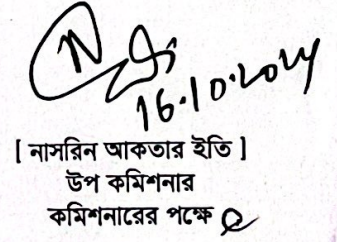 16.10.2024
[ নাসরিন আকতার ইতি ]
উপ কমিশনার
কমিশনারের পক্ষে